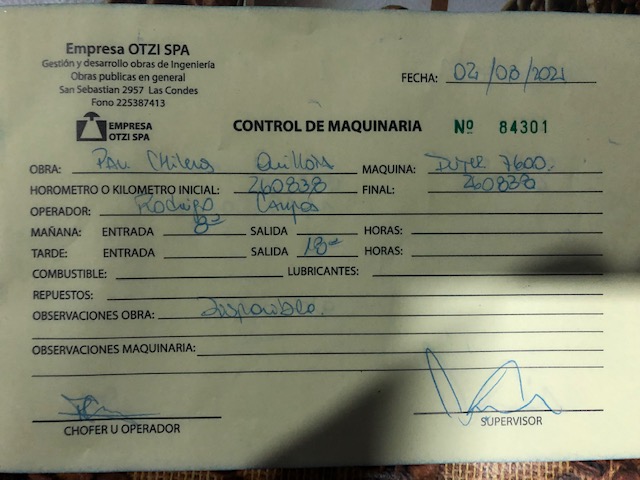 Empresa OTZI SPA
Gestión y desarrollo obras de Ingeniería
Obras publicas en general
San Sebastian 2957 Las Condes
Fono 225387413
FECHA: 02/08/2021
EMPRESA
OTZI SPA
CONTROL DE MAQUINARIA Nº 84301
OBRA: Quillon MAQUINA: 7600
HOROMETRO O KILOMETRO INICIAL: 260838 FINAL: 260838
OPERADOR: Rodrigo
MAÑANA: ENTRADA 8 SALIDA HORAS:
TARDE: ENTRADA SALIDA 18 HORAS:
COMBUSTIBLE: LUBRICANTES:
REPUESTOS:
OBSERVACIONES OBRA: Disponible
OBSERVACIONES MAQUINARIA:
CHOFER U OPERADOR
SUPERVISOR